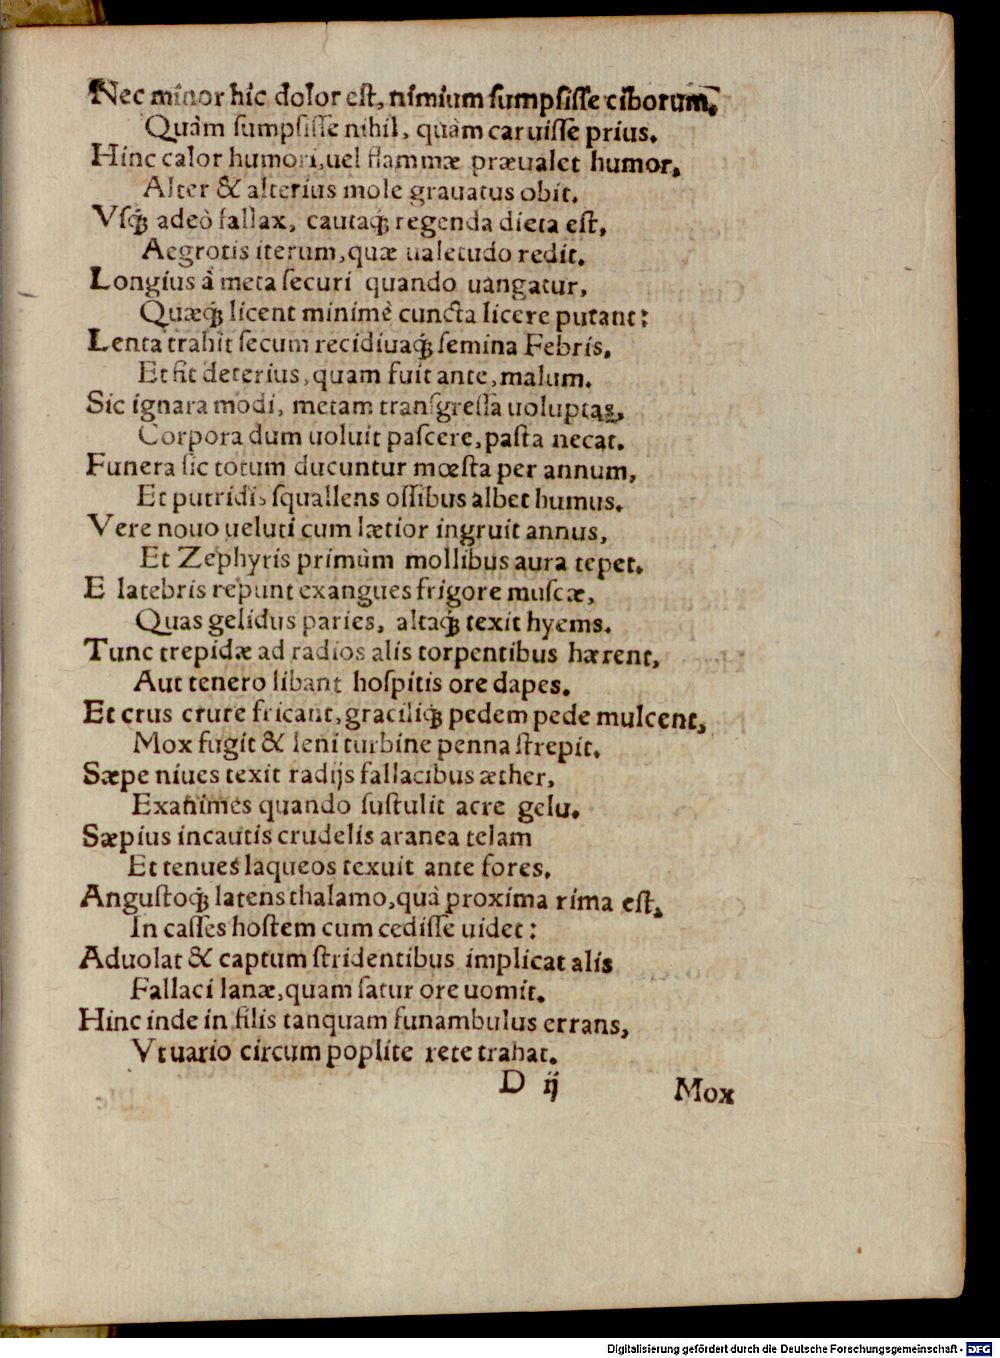 Nec minor hic dolor est, nimium sumpsisse ciborum,
Quàm sumpsisse nihil, quàm caruisse prius.
Hinc calor humori, uel flammæ præualet humor,
Alter & alterius mole grauatus obit.
Vsq́ adeò fallax, cautaq́ regenda dieta est,
Aegrotis iterum, quæ ualetudo redit.
Longius à meta securi quando uangatur,
Quæq́ licent minimè cuncta licere putant:
Lenta trahit secum recidiuaq́ semina Febris,
Et fit deterius, quam fuit ante, malum.
Sic ignara modi, metam transgressa uoluptas,
Corpora dum uoluit pascere, pasta necat.
Funera sic totum ducuntur mœsta per annum,
Et putridis squallens ossibus albet humus.
Vere nouo ueluti cum lætior ingruit annus,
Et Zephyris primùm mollibus aura tepet.
E latebris repunt exangues frigore muscæ,
Quas gelidus paries, altaq́ texit hyems.
Tunc trepidæ ad radios alis torpentibus hærent,
Aut tenero libant hospitis ore dapes.
Et crus crure fricant, graciliq́ pedem pede mulcent,
Mox fugit & leni turbine penna strepit.
Sæpe niues texit radijs fallacibus æther,
Exanimes quando sustulit acre gelu.
Sæpius incautis crudelis aranea telam
Et tenues laqueos texuit ante fores.
Angustoq́ latens thalamo, quà proxima rima est,
In casses hostem cum cedisse uidet:
Aduolat & captum stridentibus implicat alis
Fallaci lanæ, quam satur ore uomit.
Hinc inde in filis tanquam funambulus errans,
Vt uario circum poplite rete trahat.
D ij Mox
Digitalisierung gefördert durch die Deutsche Forschungsgemeinschaft - DFG